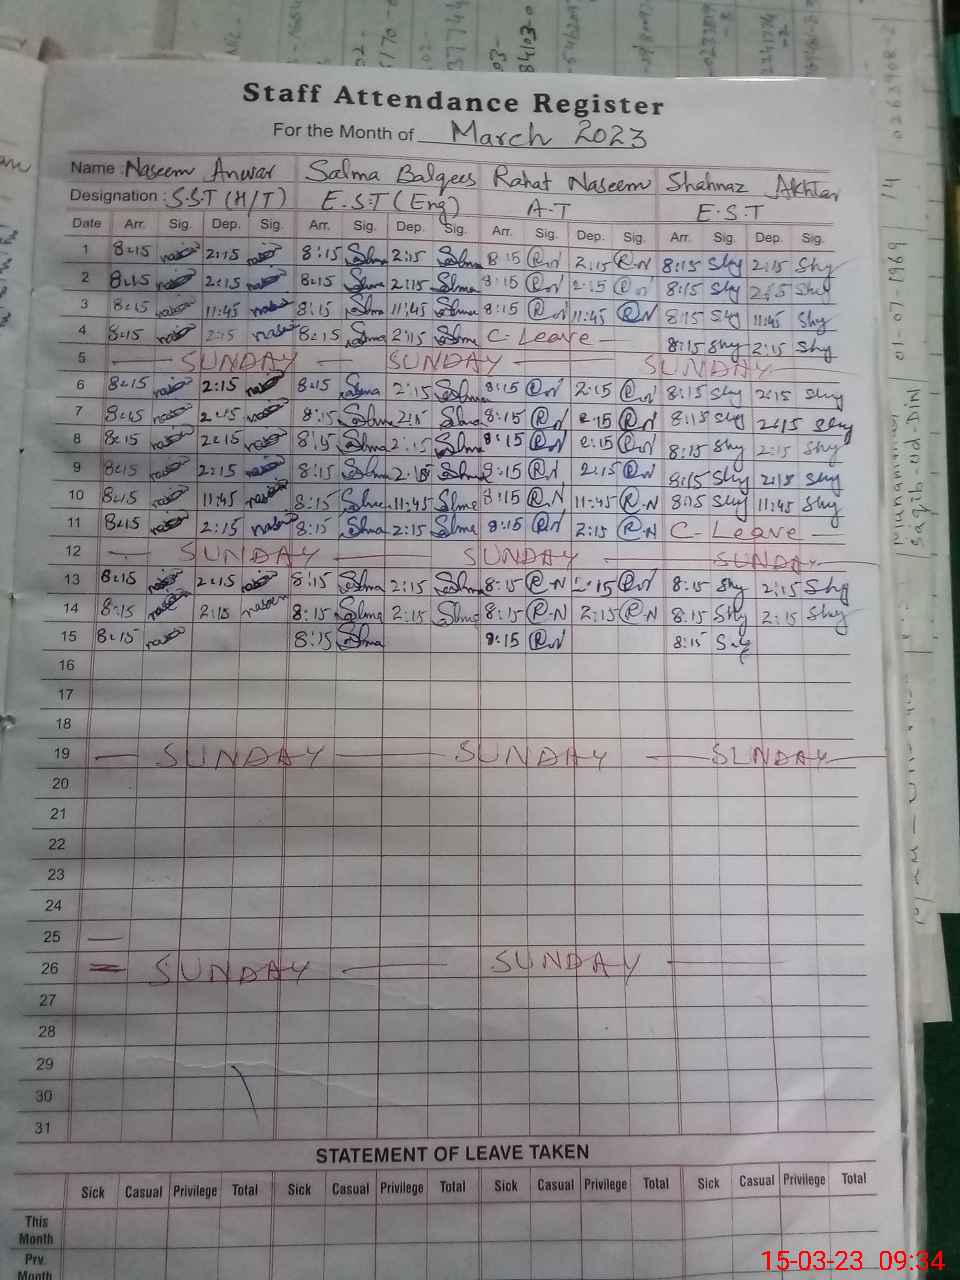 Staff Attendance Register
For the Month of March 2023
Name : Naseem Anwar Salma Balqees Rahat Naseem Shahnaz Akhtar
Designation : S.S.T (H/T) E.S.T (Eng) A-T E.S.T
Date Arr. Sig. Dep. Sig. Arr. Sig. Dep. Sig. Arr. Sig. Dep. Sig. Arr. Sig. Dep. Sig.
1 8:15 2:15 8:15 Salma 2:15 Salma 8:15 R.N 2:15 R.N 8:15 Shy 2:15 Shy
2 8:15 2:15 8:15 Salma 2:15 Salma 8:15 R.N 2:15 R.N 8:15 Shy 2:15 Shy
3 8:15 11:45 8:15 Salma 11:45 Salma 8:15 R.N 11:45 R.N 8:15 Shy 11:45 Shy
4 8:15 2:15 8:15 Salma 2:15 Salma C-Leave 8:15 Shy 2:15 Shy
5 SUNDAY SUNDAY SUNDAY
6 8:15 2:15 8:15 Salma 2:15 Salma 8:15 R.N 2:15 R.N 8:15 Shy 2:15 Shy
7 8:15 2:15 8:15 Salma 2:15 Salma 8:15 R.N 2:15 R.N 8:15 Shy 2:15 Shy
8 8:15 2:15 8:15 Salma 2:15 Salma 8:15 R.N 2:15 R.N 8:15 Shy 2:15 Shy
9 8:15 2:15 8:15 Salma 2:15 Salma 8:15 R.N 2:15 R.N 8:15 Shy 2:15 Shy
10 8:15 11:45 8:15 11:45 8:15 R.N 11:45 R.N 8:15 Shy 11:45 Shy
11 8:15 2:15 8:15 Salma 2:15 Salma 8:15 R.N 2:15 R.N C-Leave
12 SUNDAY SUNDAY SUNDAY
13 8:15 2:15 8:15 Salma 2:15 Salma 8:15 R-N 2:15 R.N 8:15 Shy 2:15 Shy
14 8:15 2:15 naseem 8:15 Salma 2:15 Salma 8:15 R-N 2:15 R-N 8:15 Shy 2:15 Shy
15 8:15 8:15 Salma 8:15 R.N 8:15
16
17
18
19 SUNDAY SUNDAY SUNDAY
20
21
22
23
24
25
26 SUNDAY SUNDAY
27
28
29
30
31
STATEMENT OF LEAVE TAKEN
Sick Casual Privilege Total Sick Casual Privilege Total Sick Casual Privilege Total Sick Casual Privilege Total
This Month
Prv. Month
01-07-1969
15-03-23 09:34